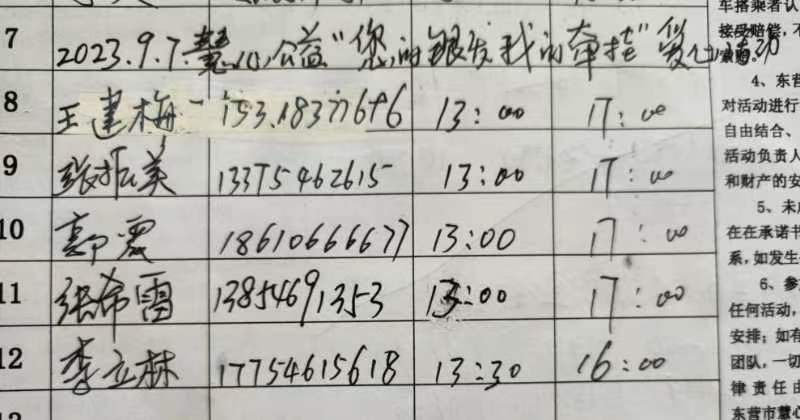 7 2023.9.7.慧心公益“您的银发我的牵挂”爱心活动
8 王建梅 15318377696 13:00 17:00
9 张振美 13375462615 13:00 17:00
10 郭霞 18610666677 13:00 17:00
11 张希雷 13854691353 13:00 17:00
12 李立林 17754615618 13:30 16:00
车搭乘者认
接受赔偿,不
4、东营
对活动进行
自由结合、
活动负责人
和财产的安
5、未成
在在承诺书
系,如发生
6、参
任何活动,
安排;如有
团队,一切
律责任由
东营市慧心